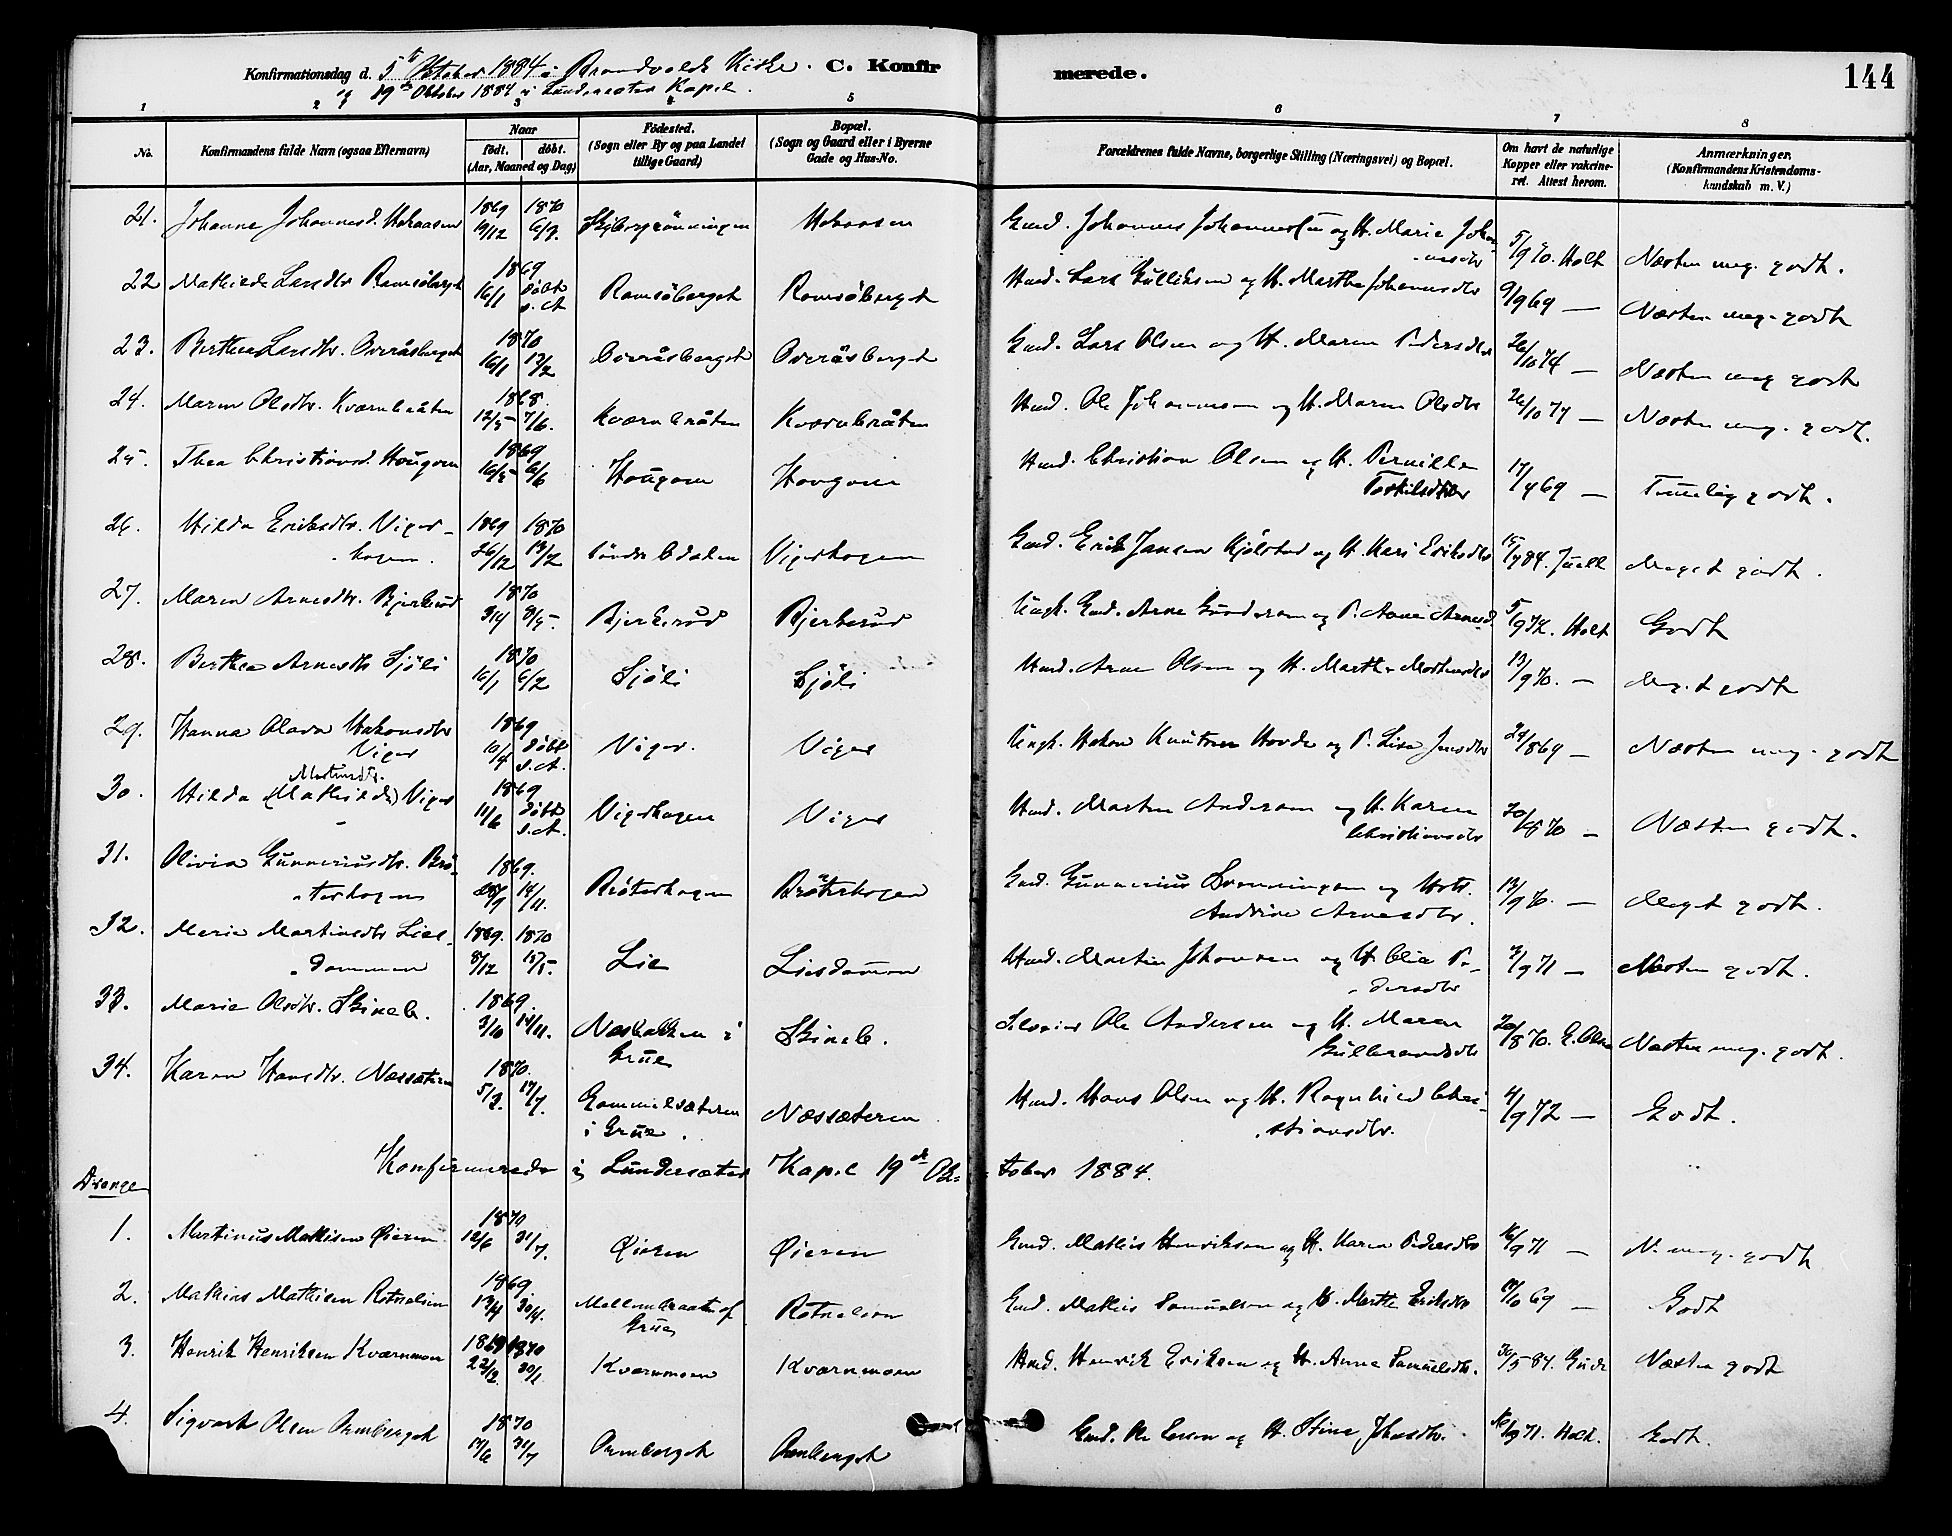 Konfirmationsdag d. 5te Oktober 1884 i Brandvold Kirke. C. Konfirmerede. 144
og 19de Oktober 1884 i Lundersæter Kapel.
1 2 3 4 5 6 7 8
No. Konfirmandens fulde Navn (ogsaa Efternavn) Naar født. døbt. (Aar, Maaned og Dag) Fødested. (Sogn eller By og paa Landet tillige Gaard) Bopæl. (Sogn og Gaard eller i Byerne Gade og Hus-No. Forældrenes fulde Navne, borgerlige Stilling (Næringsvei) og Bopæl. Om havt de naturlige Kopper eller vakcineret. Attest herom. Anmærkninger. (Konfirmandens Kristendomskundskab m. V.)
21. Johanne Johannesd. 1869 1870 Gmd. Johannes Johannessen og H. Marie Johannesdtr 5/9 70. Holt Næsten meg. godt.
22 Mathilde Larsdtr Ramsöberget 1869 16/1 döbt s. A. Ramsöberget Ramsöberget Hmd. Lars Gulliksen og H. Marthe Johannesdtr 9/9 69 — Næsten meg. godt
23. Berthea Larsdtr. Overåsberget 1870 16/1 13/2 Overåsberget Overåsberget Gmd. Lars Olsen og H. Maren Pedersdtr 26/10 74 — Næsten meg godt
24. Maren Olsdtr. Kværnbråten 1868. 12/5 7/6. Kværnbråten Kværnbråten Hmd. Ole Johannesen og H. Maren Olsdtr 26/10 77 — Næsten meg. godt.
25. Thea Christiansd. Hougom 1869 16/5 6/6 Hougom Hougom Hmd. Christian Olsen og H. Pernille Torkilsdtr 17/7 69 — Temmelig godt.
26. Hilda Eriksdtr. Vigerhagen. 1869 1870 26/12 13/2 Söndre Odalen Vigerhagen Gmd. Erik Jansen Kjölstad og H. Kari Eriksdtr 15/7 84. Juell Meget godt.
27. Maren Arnesdtr. Bjerkerud 1870 3/4 8/5. Bjerkerud Bjerkerud Ungk. Gmd. Arne Gundersen og P. Anne Arnesd. 5/9 72. Holt Godt
28. Berthea Arnesdtr Sjöli 1870 16/1 6/2 Sjöli Sjöli Hmd. Arne Olsen og H. Marthe Mortensdtr 13/9 70. — Meget godt
29. Hanna Olava Hakonsdtr Viger 1869 10/4 döbt s. A. Viger. Viger Ungk. Hakon Knutsen Hovde og P. Lisa Jensdtr 24/8 69 — Næsten meg. godt
30. Hilda (Mathilde) Martinsdtr. Viger 1869 11/6 döbt s. A. Vigerhagen Viger Hmd. Morten Andersen og H. Karen Christiansdtr 20/8 70 — Næsten godt.
31. Olivia Gunneriusdtr. Bröterhagen 1869. 14/11. Bröterhagen Bröterhagen Gmd. Gunnerius Svenningsen og Hstr. Andrine Arnesdtr. 13/9 70. — Meget godt.
32. Maria Martinsdtr Liesdammen 1869. 1870 8/12 Lie Liesdammen Hmd. Martin Johansen og H. Olia Pedersdtr 3/9 71 — Næsten godt.
33. Marie Olsdtr. Skineb. 1869. 3/10 14/11. i Grue Skineb. Ole Andersen og H. Maren Gulbrandsdtr 20/8 70. E. Olsen Næsten meg. godt.
34. Karen Hansdtr. Næssæteren 1870. 5/3. 17/7. Gammelsæteren i Grue. Næssæteren Hmd. Hans Olsen og H. Ragnhild Christiansdtr. 4/9 72 — Godt.
Konfirmerede i Lundersæter Kapel 19de Oktober 1884.
Drenge
1. Martinus Mathisen Øieren 1870 12/6 31/7. Øieren Øieren Gmd. Mathis Henriksen og H. Karen Pedersdtr 16/9 71 — N. meg. godt
2. Mathias Mathisen Rotnelsen 1869. 13/4 30/4. Grue Gmd. Mathis Samuelsen og H. Marthe Eriksdtr 8/10 69 — Godt
3. Henrik Henriksen Kværnmoen 1869 1870 22/12. 30/1. Kværnmoen Kværnmoen Hmd. Henrik Eriksen og H. Anne Samuelsdtr. 30/5 84. Gude Næsten godt
4. Sigvart Olsen Ormberget 1870 31/7 Ormberget Ormberget Gmd. Ole Larsen og H. Stine Johnsdtr. 71. Holt. Godt.